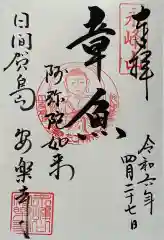 奉拝
令和六年
四月二十七日
章魚
阿弥陀如来
日間賀島
安楽寺